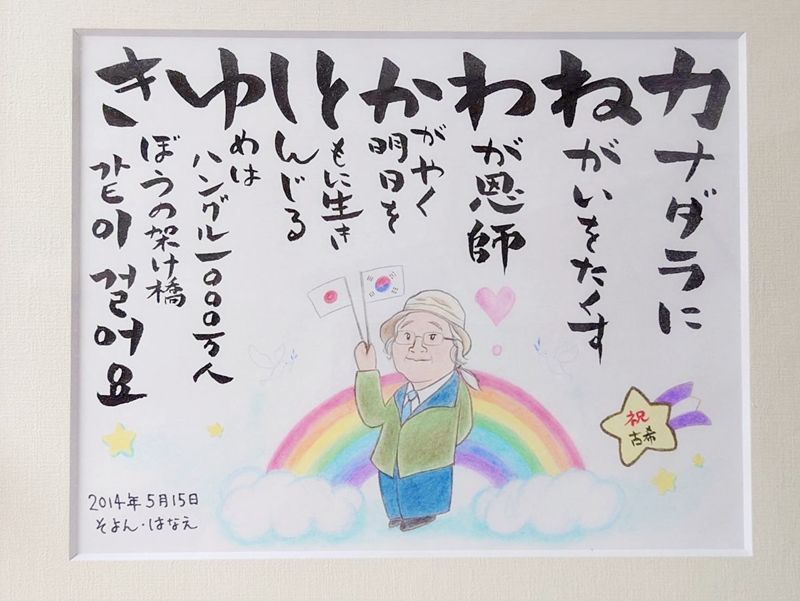 カナダラに
ねがいをたくす
わが恩師
かがやく
明日を
ともに生き
しんじる
ゆめは
ハングル一〇〇〇万人
きぼうの架け橋
같이 걸어요
祝
古希
2014年5月15日
そよん・はなえ